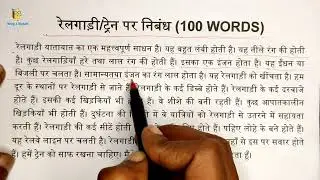 रेलगाड़ी/ट्रेन पर निबंध (100 WORDS)
रेलगाड़ी यातायात का एक महत्त्वपूर्ण साधन है। यह बहुत लंबी होती है। यह नीले रंग की होती
है। कुछ रेलगाड़ियाँ हरे तथा लाल रंग की होती हैं। इसका एक इंजन होता है। यह ईंधन या
बिजली पर चलता है। सामान्यतया इंजन का रंग लाल होता है। यह रेलगाड़ी को खींचता है। हम
दूर के स्थानों पर रेलगाड़ी से जाते हैं। रेलगाड़ी के कई डिब्बे होते हैं। रेलगाड़ी के कई दरवाजे
होते हैं। इसकी कई खिड़कियाँ भी होती हैं। वे शीशे की बनी रहती हैं। कुछ आपातकालीन
खिड़कियाँ भी होती हैं। दुर्घटना में वे यात्रियों को रेलगाड़ी से उतरने में सहायता
करती हैं। रेलगाड़ी की कई सीटें होती हैं। पहिए लोहे के बने होते हैं।
यह रेलवे लाइन पर चलती है। पर सवार होते
हैं। हमें ट्रेन को साफ रखना चाहिए।